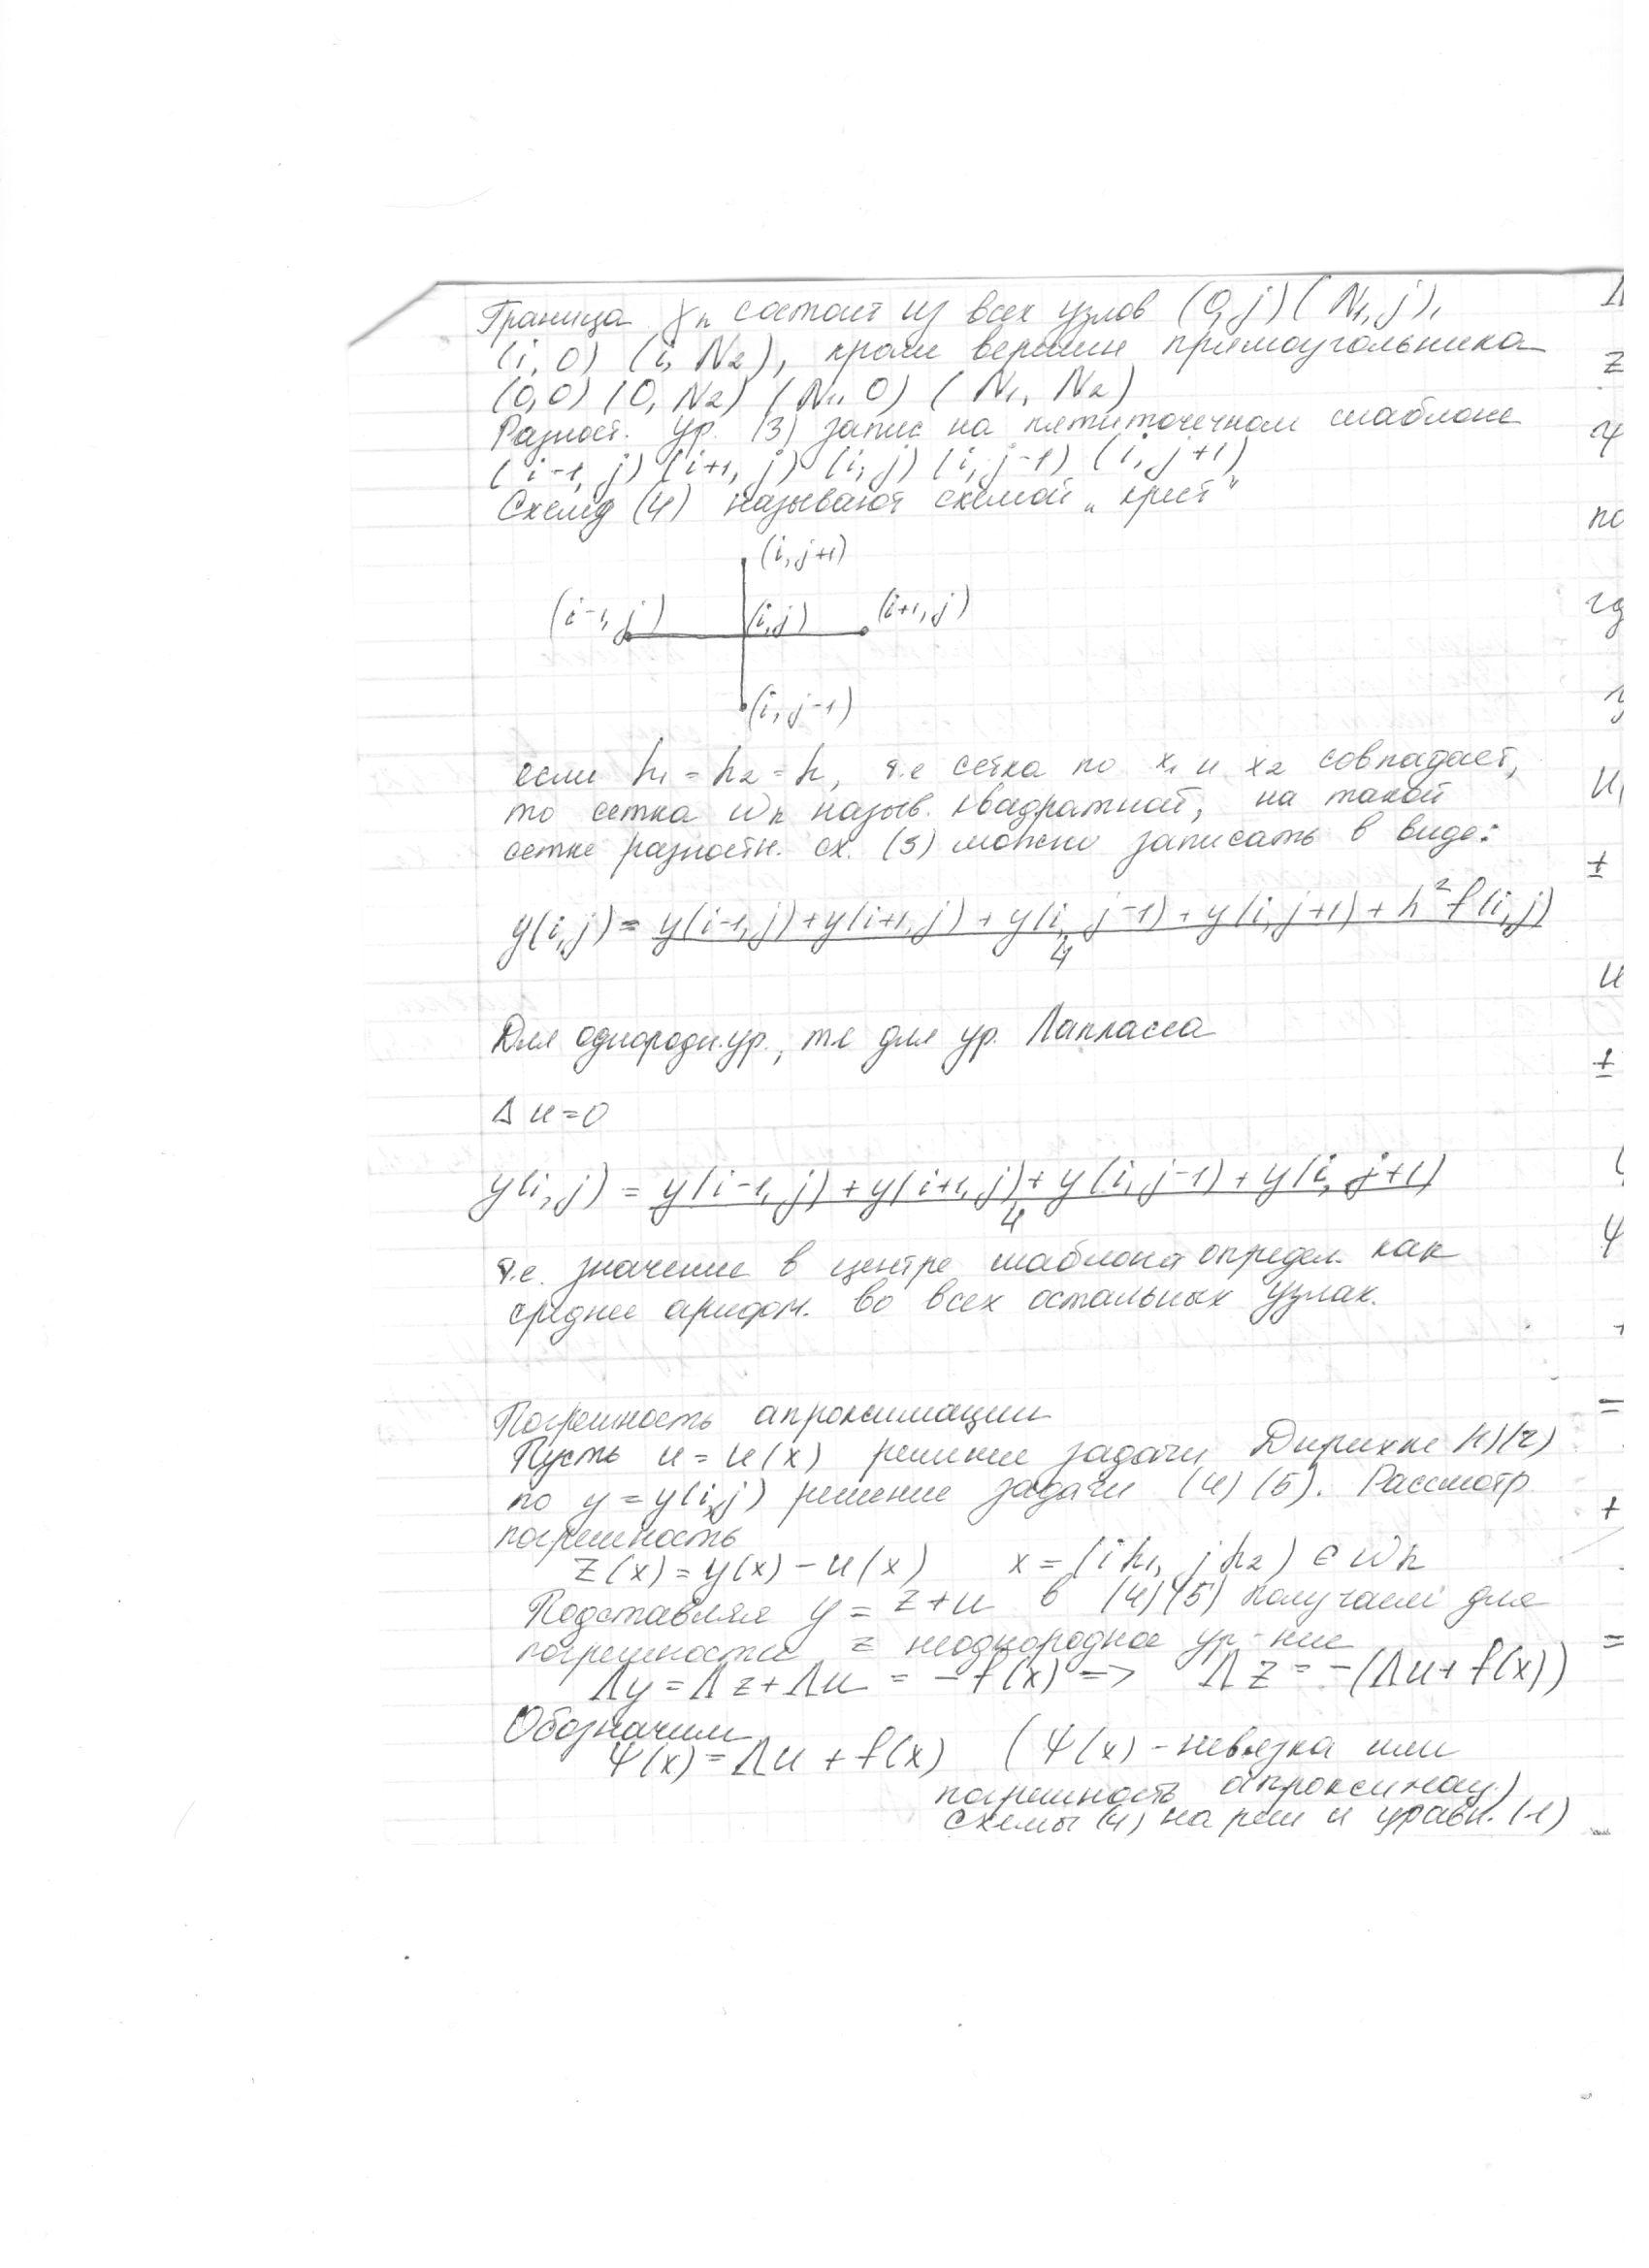 Граница γh состоит из всех узлов (0,j) (N1,j),
(i,0) (i,N2), кроме вершин прямоугольника
(0,0) (0,N2) (N1,0) (N1,N2)
Разност. ур. (3) запис на пятиточечном шаблоне
(i-1,j) (i+1,j) (i,j) (i,j-1) (i,j+1)
Схему (4) называют схемой „крест"
(i,j+1)
(i-1,j) (i,j) (i+1,j)
(i,j-1)
если h1 = h2 = h, т.е сетка по x1 и x2 совпадает,
то сетка ωh назыв. квадратной, на такой
сетке разностн. сх. (3) можно записать в виде:
y(i,j) = y(i-1,j)+y(i+1,j)+y(i,j-1)+y(i,j+1)+h²f(i,j)
4
Для однородн.ур., те для ур. Лапласса
Δu=0
y(i,j) = y(i-1,j)+y(i+1,j)+y(i,j-1)+y(i,j+1)
4
т.е. значение в центре шаблона определ. как
среднее арифм. во всех остальных узлах.
Погрешность апроксимации
Пусть u = u(x) решение задачи Дирихле (1)(2)
по y = y(i,j) решение задачи (4) (5). Рассмотр
погрешность
z(x) = y(x) - u(x) x = (ih1, jh2) ∈ ωh
Подставляя y = z+u в (4)(5) получаем для
погрешности z неоднородное ур-ние
Λy = Λz + Λu = -f(x) => Λz = -(Λu + f(x))
Обозначим
Ψ(x) = Λu + f(x) (Ψ(x) - невязка или
погрешность апроксимац.)
схемы (4) на реш и уравн. (1)
Λ
z
Ψ
по
гд
и
±
и
±
Ψ
=
+
=